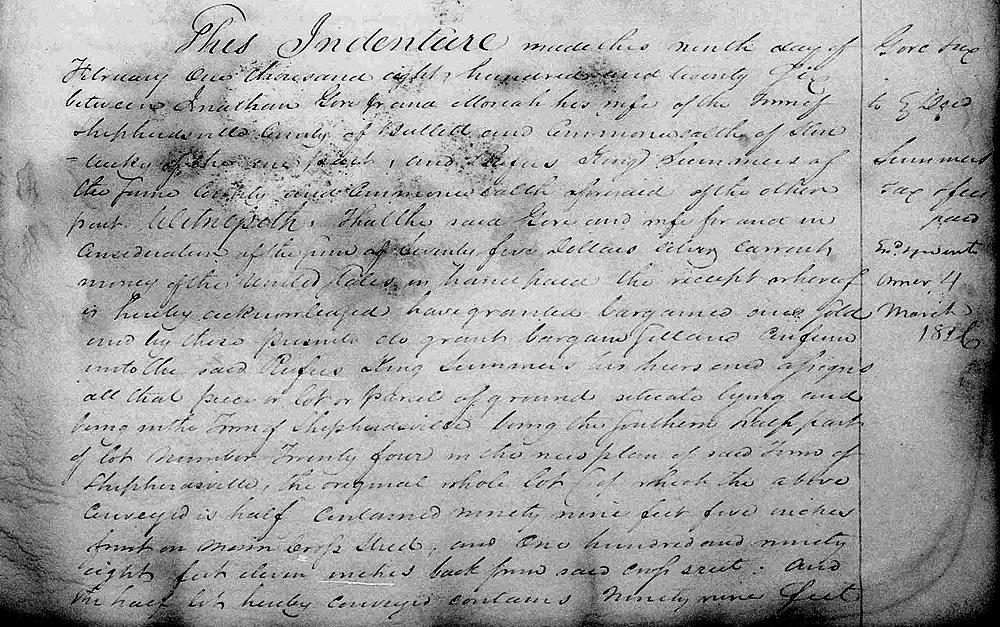 This Indenture made this ninth day of
February One thousand eight hundred and twenty Six
between Jonathan Gore Jr and Moriah his wife of the Town of
Shepherdsville County of Bullitt and Commonwealth of Ken
-tucky of the one part, and Rufus King Summers of
the same County and Commonwealth aforesaid of the other
part Witnesseth, That the said Gore and wife for and in
Consideration of the sum of Seventy five Dollars Silver Current
money of the United States in hand paid the receipt whereof
is hereby acknowledged have granted bargained and Sold
and by these presents do grant bargain Sell and Confirm
unto the said Rufus King Summers his heirs and assigns
all that piece or lot or parcel of ground situate lying and
being in the Town of Shepherdsville being the Southern half part
of lot number Twenty four in the new plan of said Town of
Shepherdsville, the original whole lot (of which the above
Conveyed is half Contained ninety nine feet five inches
front on Main Cross Street, and One hundred and ninety
eight feet eleven inches back from said cross street: And
the half lot hereby conveyed contains Ninety nine feet
Gore &ux
to Deed
Summers
Tax & fees
paid
4
March
1826